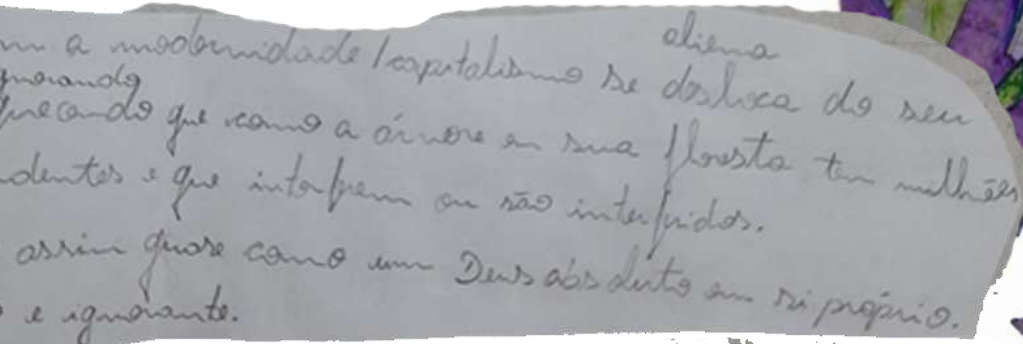 aliena
m a modernidade/capitalismo se desloca do seu
gnorando
quecando que como a árvore em sua floresta tem milhões
dentes e que interferem ou são interferidos.
assim quase como um Deus absoluto em si próprio.
o e ignorante.